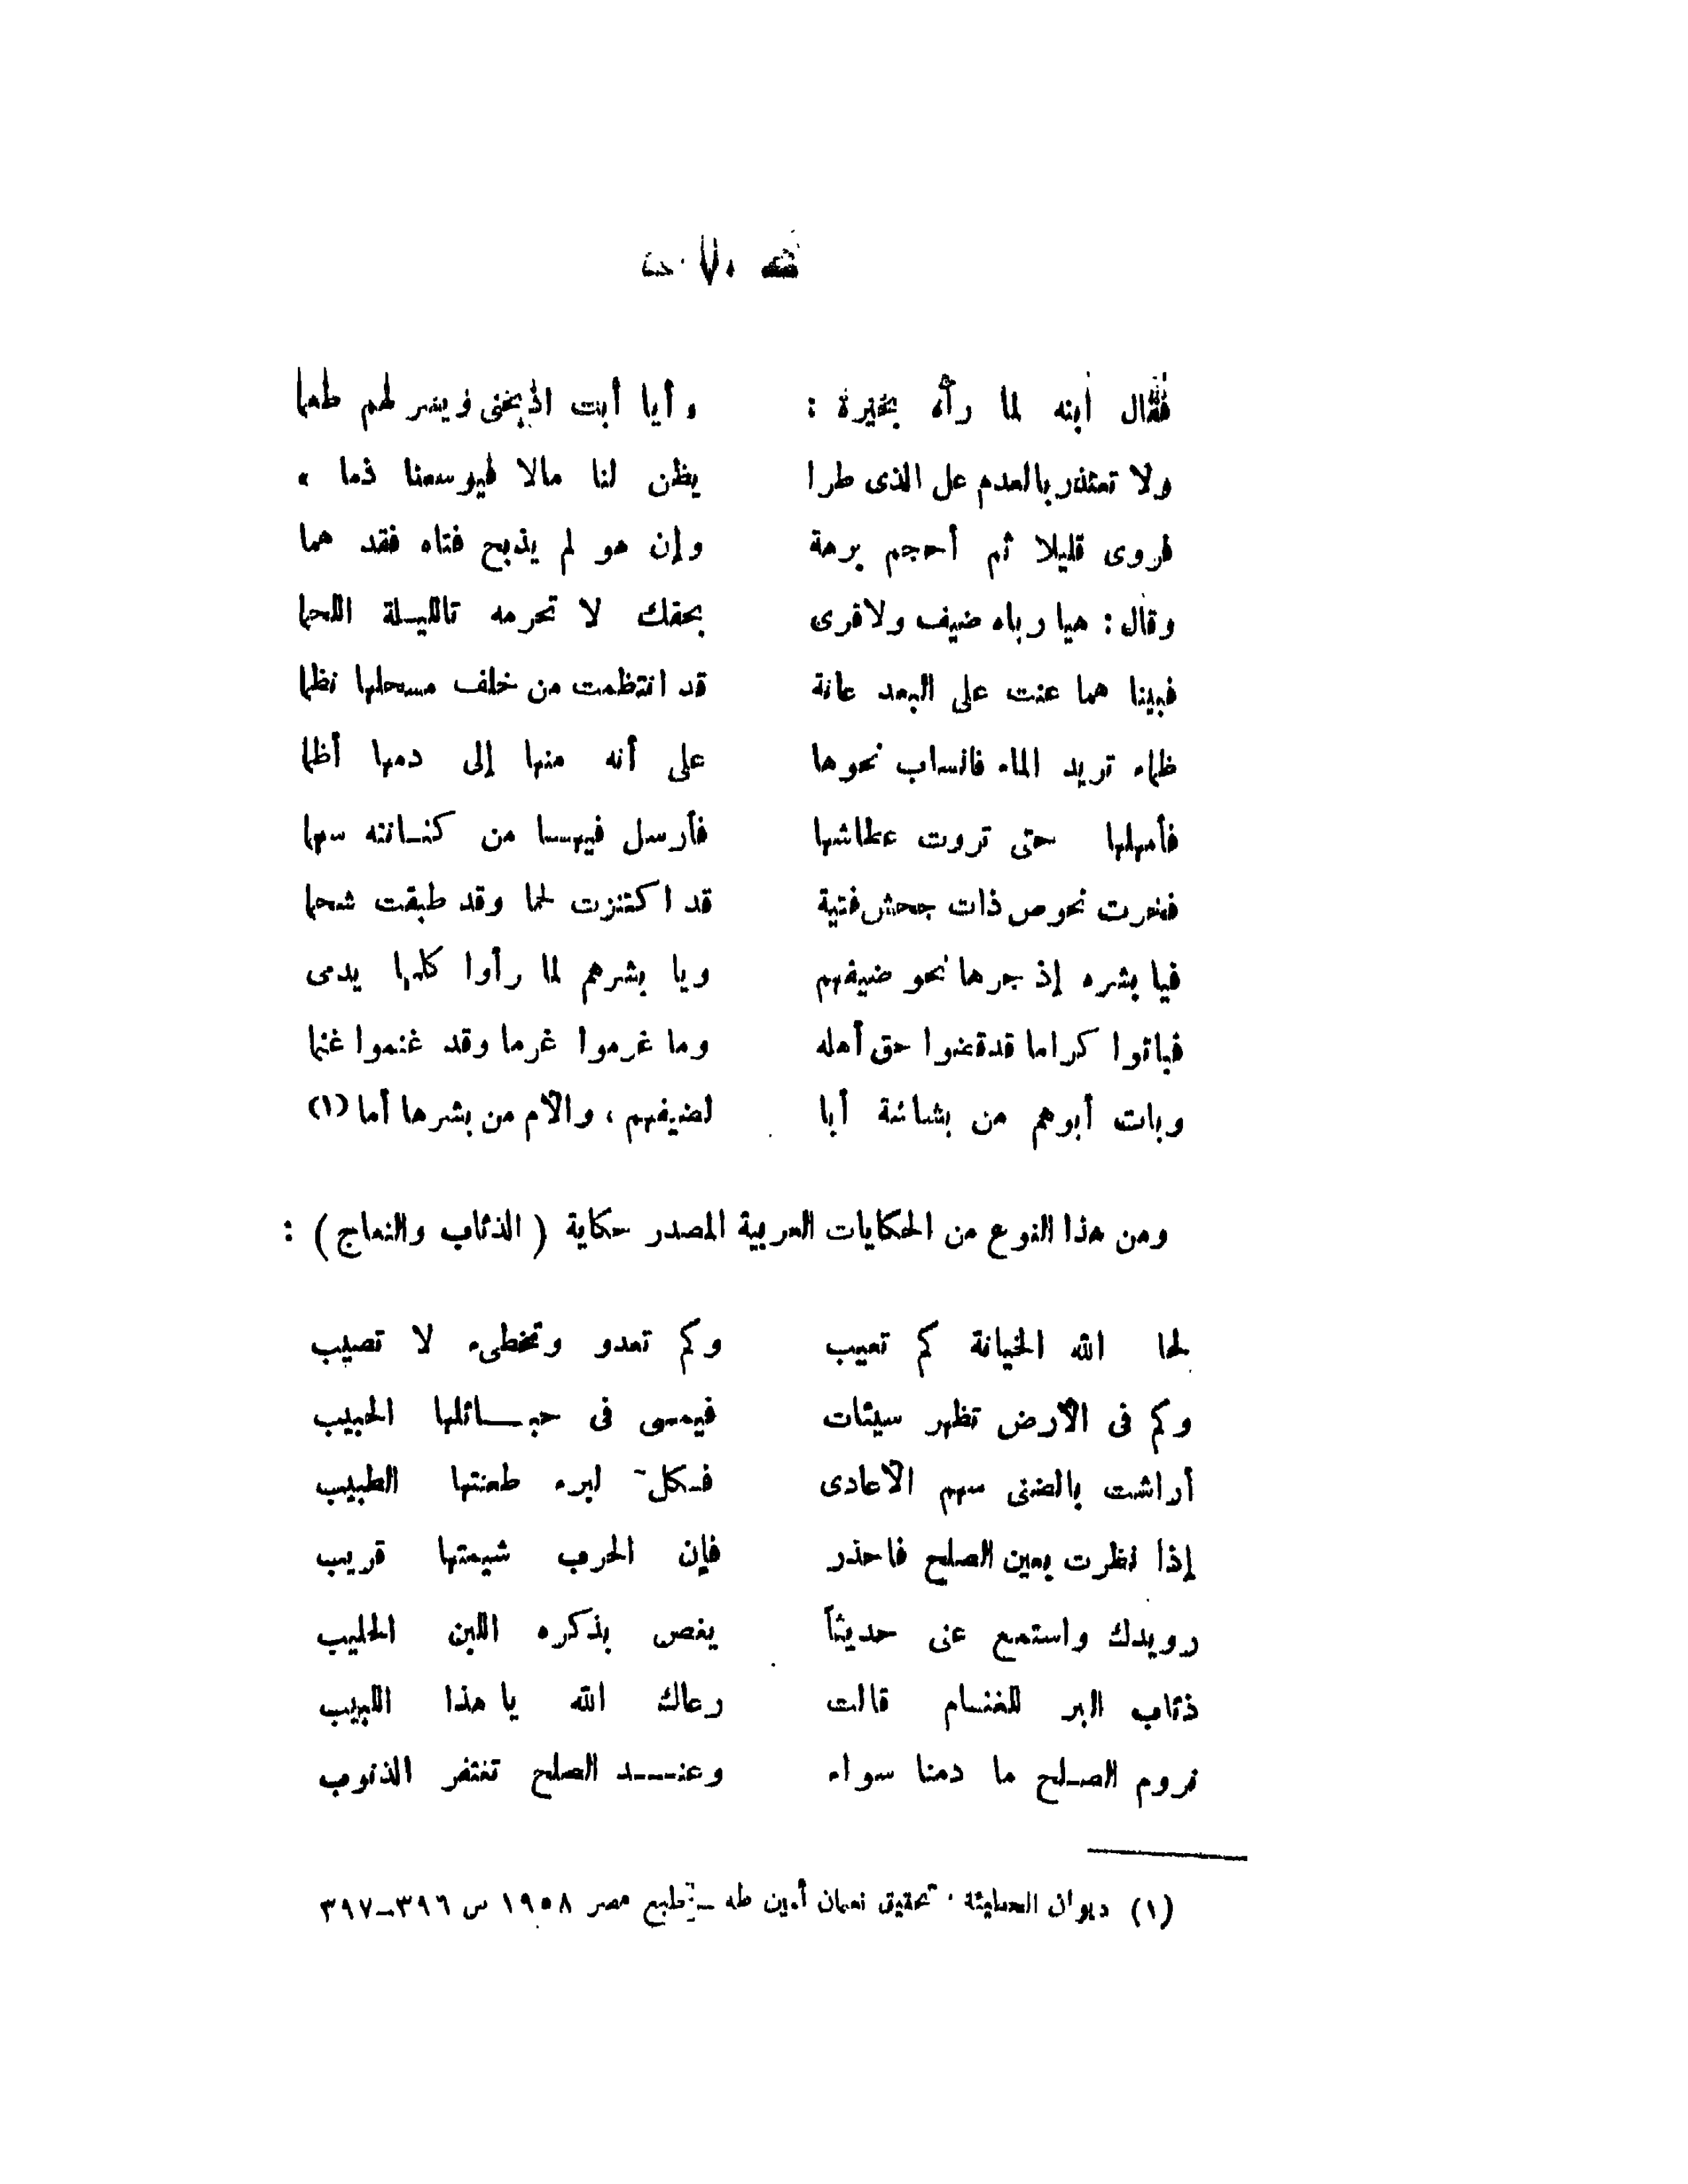 — ٧٠ —
فقال ابنه لما رآه بحيرة : « أيا أبت اذبحنى ويسر لهم طعما
ولا تعتذر بالعدم عل الذى طرا يظن لنا مالا فيوسعنا ذما »
فروى قليلا ثم أحجم برهة وإن هو لم يذبح فتاه فقد هما
وقال : هيا رباه ضيف ولا قرى بحقك لا تحرمه تالليلة اللحما
فبينا هما عنت على البعد عانة قد انتظمت من خلف مسحلها نظما
ظماء تريد الماء فانساب نحوها على أنه منها إلى دمها أظما
فأمهلها حتى تروت عطاشها فأرسل فيهـا من كنـانته سهما
فخرت نحوص ذات جحش فتية قد اكتنزت لحما وقد طبقت شحما
فيا بشره إذ جرها نحو ضيفهم ويا بشرهم لما رأوا كلمها يدمى
فباتوا كراما قد قضوا حق أهله وما غرموا غرما وقد غنموا غنما
وبات أبوهم من بشاشة أبا لضيفهم ، والأم من بشرها أما (١)
ومن هذا النوع من الحكايات العربية المصدر حكاية ( الذئاب والنعاج ) :
لحا الله الخيانة كم تعيب وكم تعدو وتخطىء لا تصيب
وكم فى الأرض تظهر سيئات فيمسى فى حبـائلها الحبيب
أراشت بالضنى سهم الأعادى فـكل لبرء طعنتها الطبيب
إذا نظرت بعين الصلح فاحذر فإن الحرب شيمتها قريب
رويدك واستمع عنى حديثاً يغص بذكره اللبن الحليب
ذئاب البر للغنـام قالت رعاك الله يا هذا اللبيب
نروم الصـلح ما دمنا سواء وعنـد الصلح تغتفر الذنوب
(١) ديوان الحطيئة . تحقيق نعمان أمين طه ـ طبع مصر ١٩٥٨ س ٣٩٦ـ٣٩٧